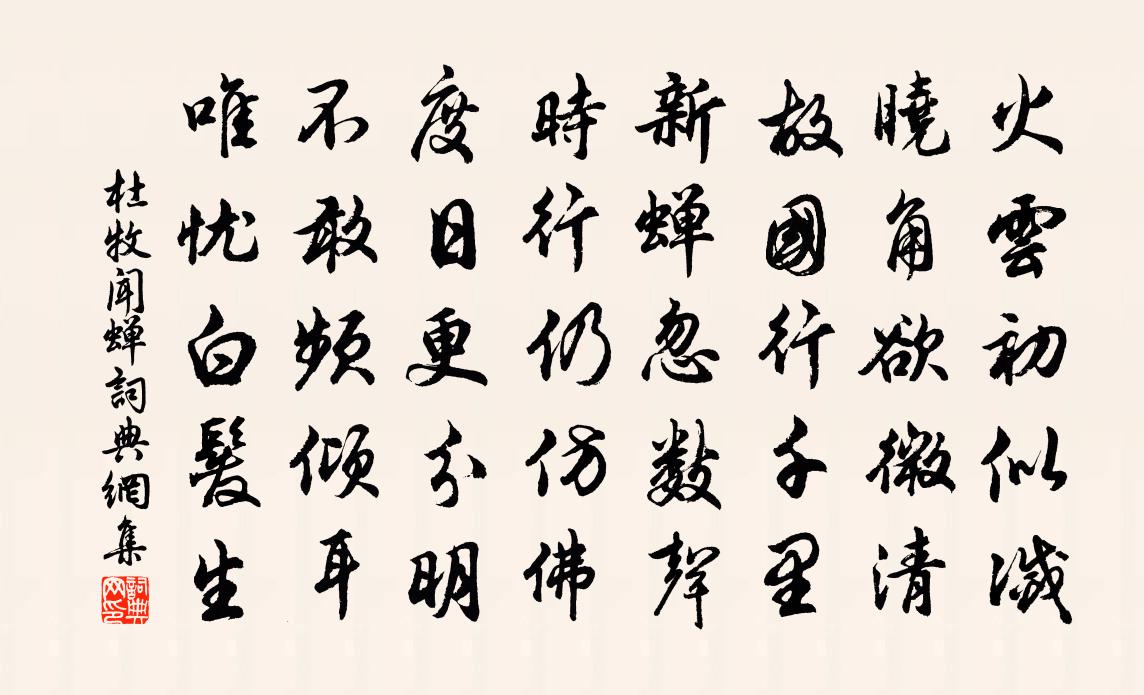 火雲初似滅
曉角欲微清
故國行千里
新蟬忽數聲
時行仍仿佛
度日更分明
不敢頻傾耳
唯忧白髮生
杜牧聞蟬詞典網集
詞典网印